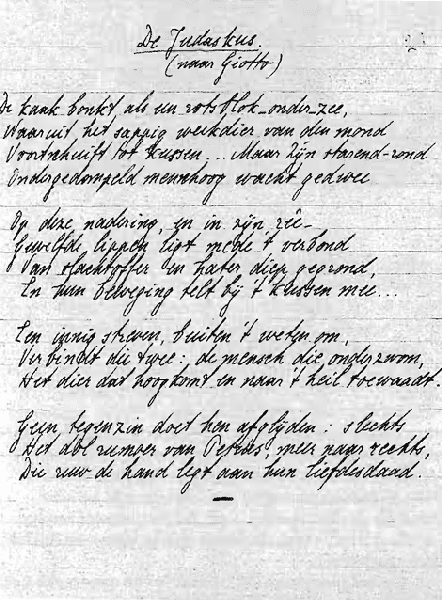 De Judaskus.
(naar Giotto)
De kaak bonkt als een rotsblok onder zee,
Waaruit het sappig weekdier van den mond
Voortschuift tot kussen... Maar zijn starend-rond
Ondergedompeld menschoog wacht gedwee
Op deze nadering, en in zijn
Gewelfde lippen ligt mede 't verbond
Van slachtoffer en hater diep gegrond,
En hun beweging telt bij 't kussen mee...
Een innig streven, buiten 't weten om,
Verbindt die twee: de mensch die onderzwom,
Het dier dat hoog komt en naar 't heil toewaadt.
Geen tegenzin doet hen afglijden: slechts
Het dol rumoer van Petrus, meer naar rechts,
Die ruw de hand legt aan hun liefdesdaad.